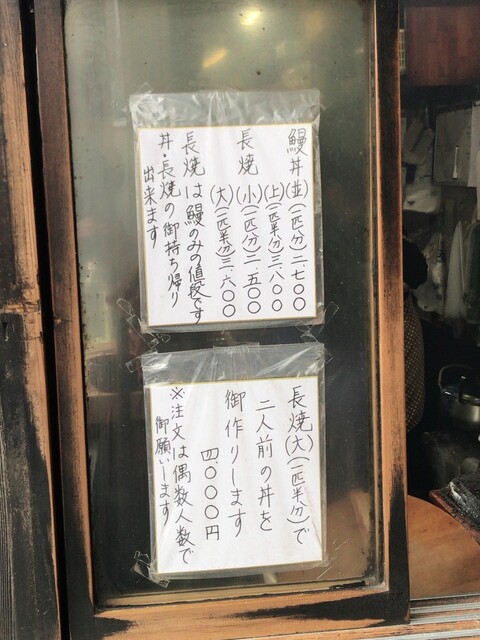 鰻丼(並)(一匹分)二、七〇〇
(上)(一匹半分)三、八〇〇
長焼(小)(一匹分)二、五〇〇
(大)(一匹半分)三、六〇〇
長焼は鰻のみの値段です
丼・長焼の御持ち帰り
出来ます
長焼(大)(一匹半分)で
二人前の丼を
御作りします
四、〇〇〇円
※注文は偶数人数で
御願いします